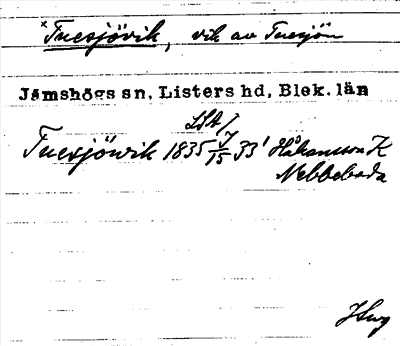 × Tuesjövik, vik av Tuesjön
Jämshögs sn, Listers hd, Blek. län
LSA J
Tuesjöwik 1835 7/15 33' Håkansson K
Nebbeboda